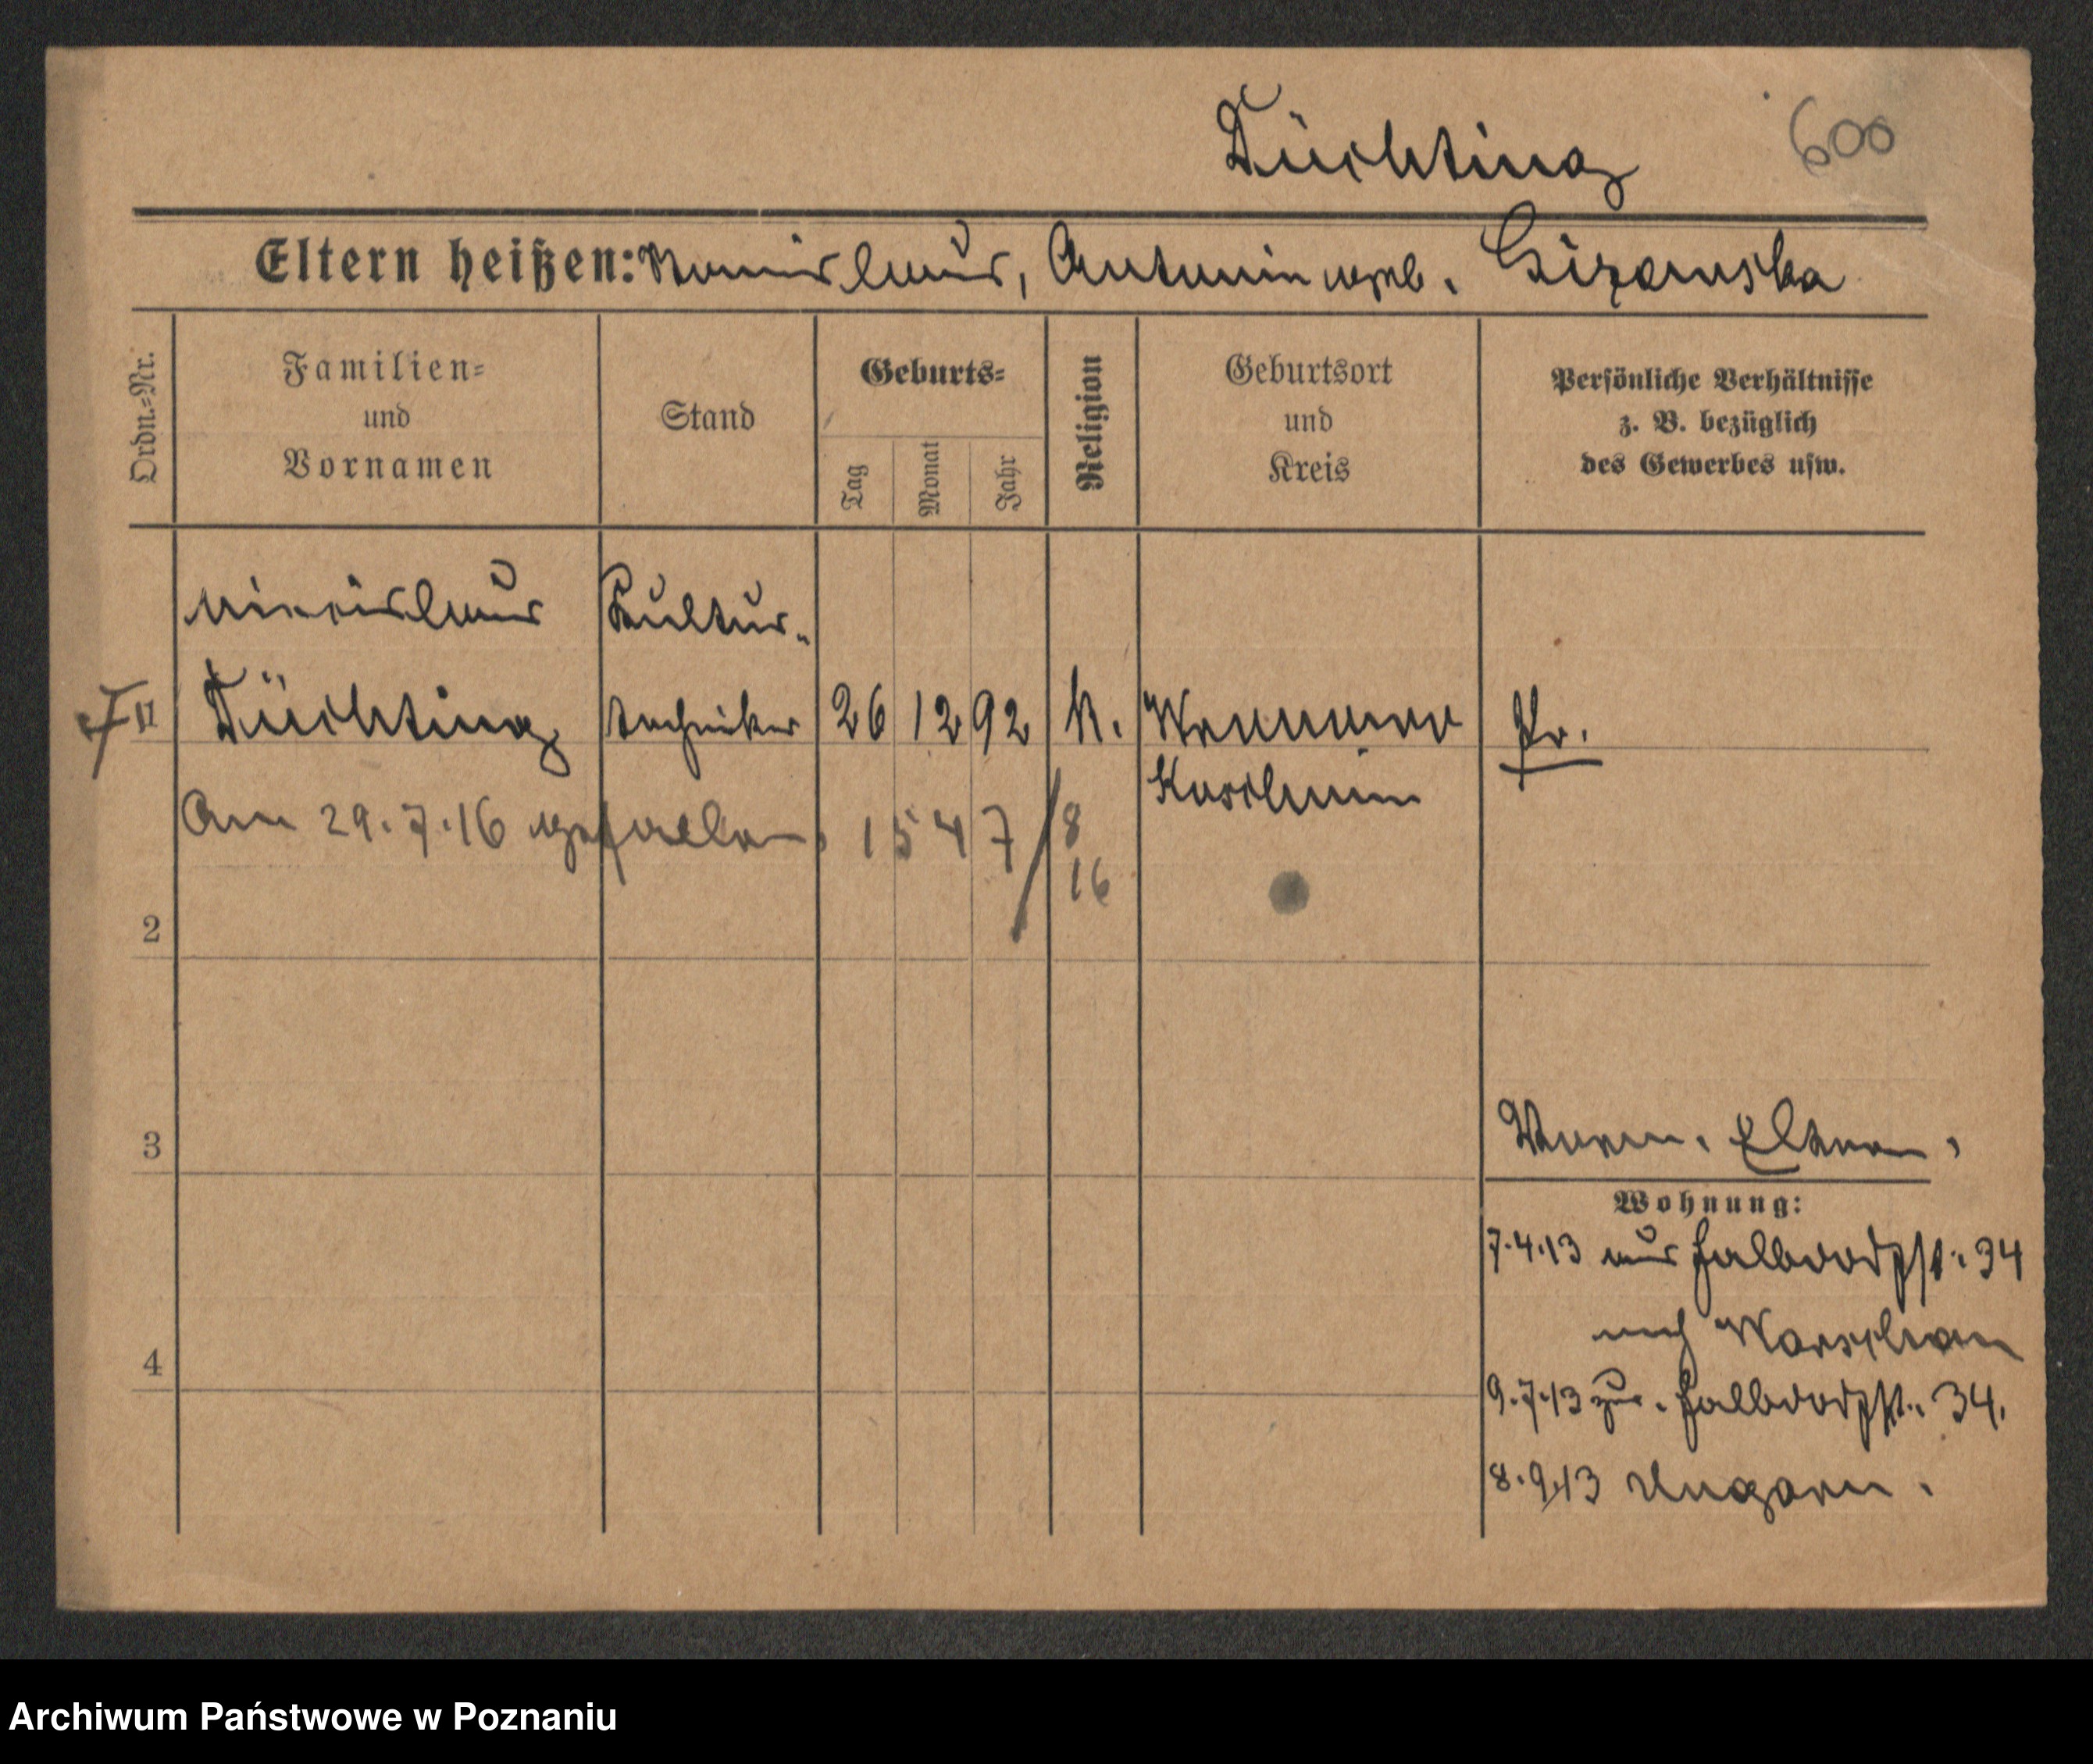 Tüchting
600
Eltern heißen: Stanislaus, Antonin geb. Cizanska
Ordn.-Nr.
Familien-
und
Vornamen
Stand
Geburts-
Tag
Monat
Jahr
Religion
Geburtsort
und
Kreis
Persönliche Verhältnisse
z. B. bezüglich
des Gewerbes usw.
Kultur-
Tüchting techniker 26 12 92 k. Pr.
Koschmin
Am 29.7.16 gefallen, 1547/8
16
2
3
Eltern.
Wohnung:
7.4.13 aus Halbdorfst. 34
nach
4
9.7.13 zur. Halbdorfst. 34.
8.9.13 Ungarn.
Archiwum Państwowe w Poznaniu